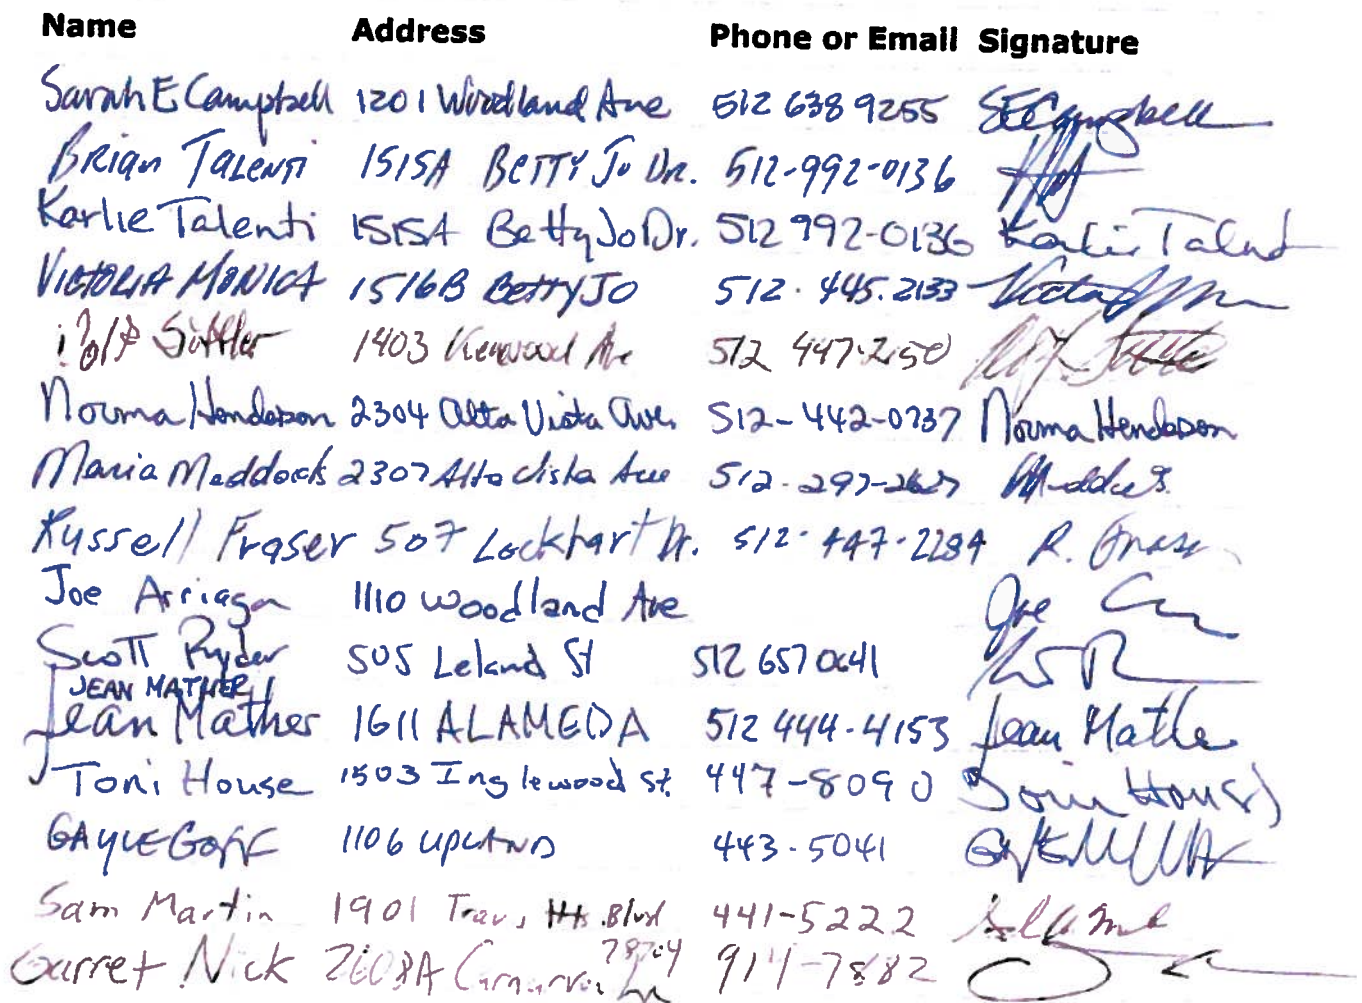 Name Address Phone or Email Signature
Sarah E Campbell 1201 Woodland Ave 512 638 9255 SECampbell
Brian Talenti 1515A Betty Jo Dr. 512-992-0136
Karlie Talenti 1515A Betty Jo Dr. 512 992-0136 Karlie Talenti
VICTORIA MONICA 1516B Betty JO 512.445.2133
Sittler 1403 Kenwood Ave 512 447-2150
Norma Henderson 2304 Alta Vista Ave. 512-442-0737 Norma Henderson
Maria Meddock 2307 Alta Vista Ave 512-297-2627
Russell Fraser 507 Lockhart Dr. 512-447-2284 R. Fraser
Joe Arriaga 1110 Woodland Ave Joe
Scott Ryder 505 Leland St 512 657 0641
JEAN MATHER
Jean Mather 1611 ALAMEDA 512 444-4153 Jean Mather
Toni House 1503 Inglewood St. 447-8090 Toni House
GAYLE GOFF 1106 UPLAND 443-5041
Sam Martin 1901 Travis Hts. Blvd 441-5222
78704
Garret Nick 2608A Ln 914-7882